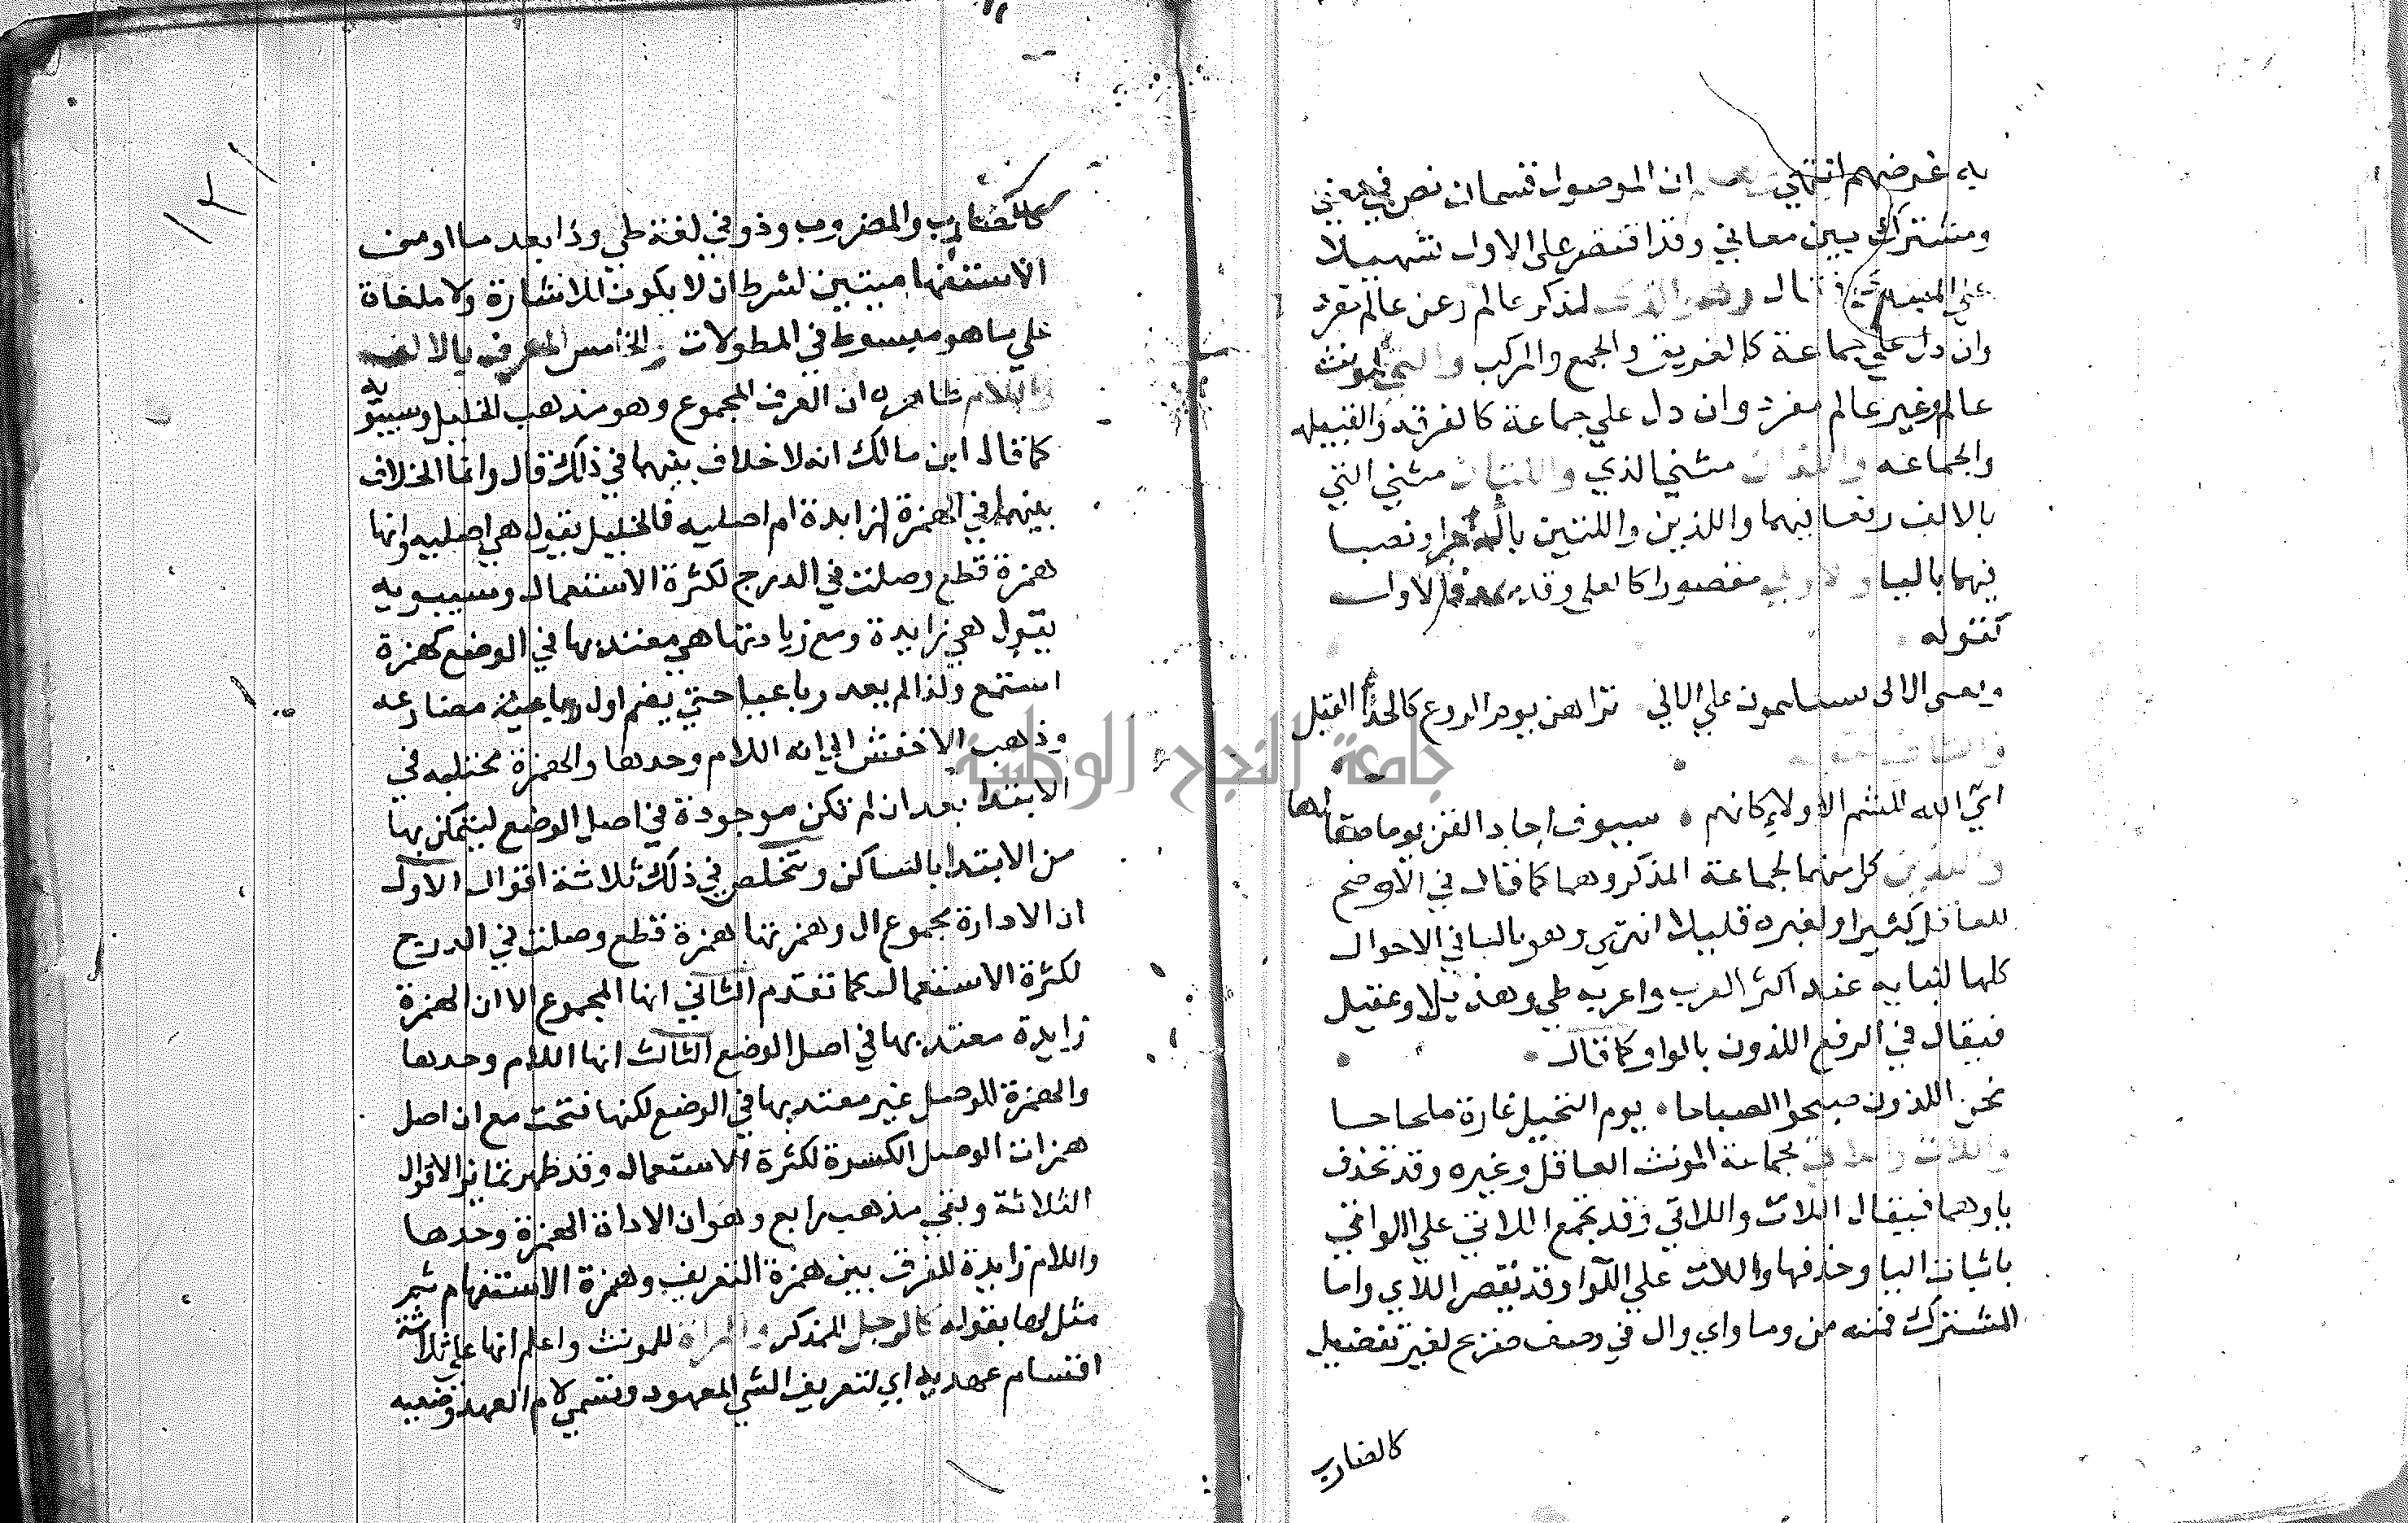 به غرضهم انتهي ان الموصول قسمان نص في معني
ومشترك بين معاني وقد اقتصر علي الاول تسهيلا
علي فقال لمذكر عالم وعن عالم مفرد
وان دل علي جماعة كالفريق والجمع والمركب والتي لمونث
عالم وغير عالم مفرد وان دل علي جماعة كالفرقه والقبيله
والجماعه واللذان مثني الذي واللتان مثني التي
بالالف رفعا فيهما واللذين واللتين جرا ونصبا
فيهما باليا مقصورا كالعلي وقد فالاول
كقوله
الالي يستليمون علي الالي تراهن يوم الروع كالحدا القبل

ابي الله للشم الاولاء كانهم سيوف اجاد القين يوما صقالها
والذين كل منهما لجماعة المذكر وهما كما قال في الاوضح
للعاقل كثيرا ولغيره قليلا انتهي وهو باليا في الاحوال
كلها لبنايه عند اكثر العرب واعربه طي وهذيل او عقيل
فيقال في الرفع اللذون بالواو كما قال
نحن اللذون صبحوا الصباحا يوم النخيل غارة ملحاحا
لجماعة المونث العاقل وغيره وقد تحذف
ياوهما فيقال اللات واللاتي وقد تجمع اللاتي علي اللواتي
باثبات اليا وحذفها واللات علي اللوا وقد يقصر اللاي واما
المشترك فمنه من وما واي وال في وصف صريح لغير تفضيل
كالضارب
كالضارب والمضروب وذو في لغة طي وذا بعد ما او من
الاستفهاميتين لشرط ان لا يكون للاشارة ولا ملغاة
علي ما هو مبسوط في المطولات والخامس المعرف بالالف
واللام ظاهره ان المعرف المجموع وهو مذهب الخليل وسيبويه
كما قال ابن مالك انه لا خلاف بينهما في ذلك قال وانما الخلاف
بينهما في الهمزة ازايدة ام اصليه فالخليل يقول هي اصليه وانها
همزة قطع وصلت في الدرج لكثرة الاستعمال وسيبويه
يقول هي زايدة ومع زيادتها هي معتد بها في الوضع كهمزة
استمع ولذا لم يعد رباعيا حتي يضم اول مضارعه
وذهب الاخفش الي انه اللام وحدها والهمزة مجتلبه في
الابتدا بعد ان لم تكن موجودة في اصل الوضع ليتمكن بها
من الابتدا بالساكن ويتخلص في ذلك ثلاثة اقوال الاول
ان الادارة مجموع ال وهمزتها همزة قطع وصلت في الدرج
لكثرة الاستعمال كما تقدم الثاني انها المجموع الا ان الهمزة
زايدة معتد بها في اصل الوضع الثالث انها اللام وحدها
والهمزة للوصل غير معتد بها في الوضع لكنها فتحت مع ان اصل
همزات الوصل الكسرة لكثرة الاستعمال وقد ظهر تمايز الاقوال
الثلاثة وبقي مذهب رابع وهو ان الاداة الهمزة وحدها
واللام زايدة للفرق بين همزة التعريف وهمزة الاستفهام ثم
مثل لها بقوله كالرجل للمذكر والمراة للمونث واعلم انها علي ثلاثة
اقسام عهديه اي لتعريف الشي المعهود وتسمي لام العهد